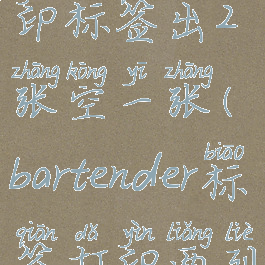 印标签出2
zhāng kōng yī zhāng
张空一张(
bartender标 biāo
qiān dǎ yìn liǎng liè
签打印两列